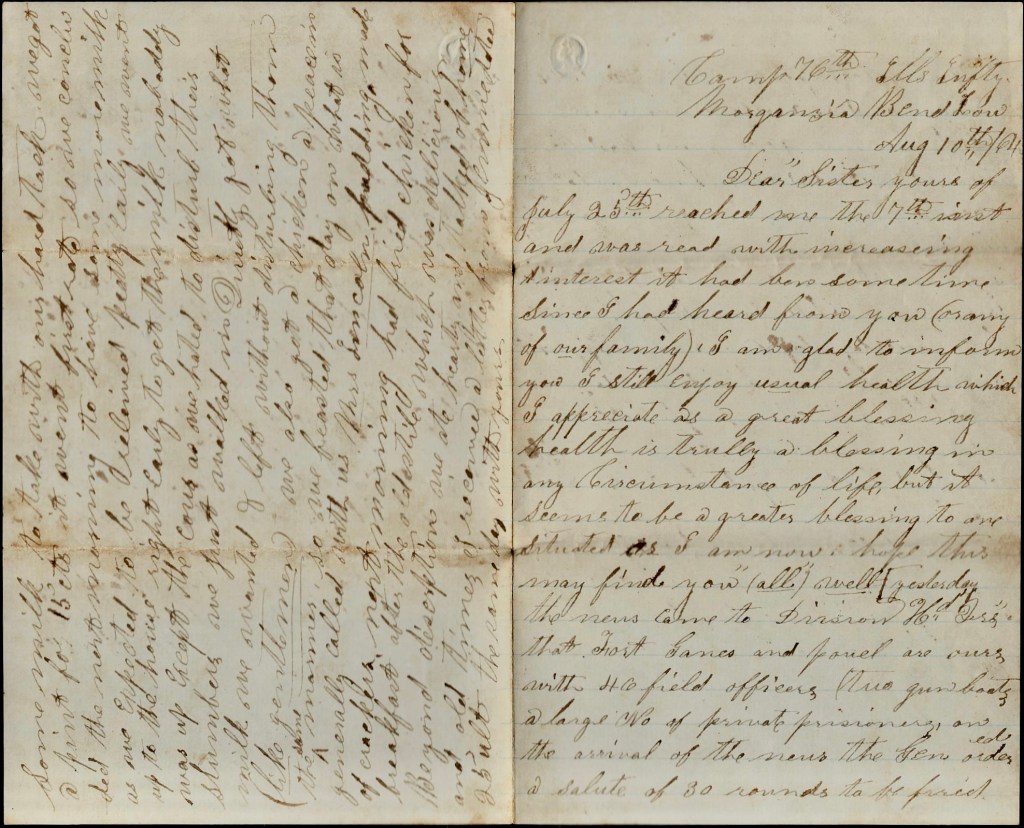 Camp 76th Ills Infty
Morganzia Bend Lou
Aug 10th/64
Dear Sister yours of
July 25th reached me the 7th inst
and was read with increasing
interest it had ben some time
Since I had heard from you (or any
of our family) I am glad to inform
you I still enjoy usual health which
I appreciate as a great blessing
health is trully a blessing in
any Circumstance of life, but it
seems to be a greater blessing to one
situated as I am now I hope this
may find you "(all)" well [yesterday
the news came to Division Hd Qrs
that Fort Ganes and powel are ours
with 40 field officers (two gun boats
a large No of private prisioners, on
the arrival of the news the Gen ordered
a salute of 30 rounds to be fired.
some milk to take with our hard tack we got
a pint for 15 cts it went first rate so we conclu
ded the next morning to have some more milk
as we expected to be Relieved pretty early we went
up to the house right early to get the milk nobaddy
was up Except the cows as we hated to disturb their
slumbers we just walked in Quietly got what
milk we wanted & left without disturbing them
(like gentlemen) we also got a chicken apeacein
the same manner so we feasted that day on what is
generally called with us Mrs Lincoln pudding, made
of crackers, next morning had fried chicken for
breakfast after the old stile which was delicious
Beyond discription we ate hearty and talked of home
and old times I received a letter from Jennie dated
25 ult the same day with yours.